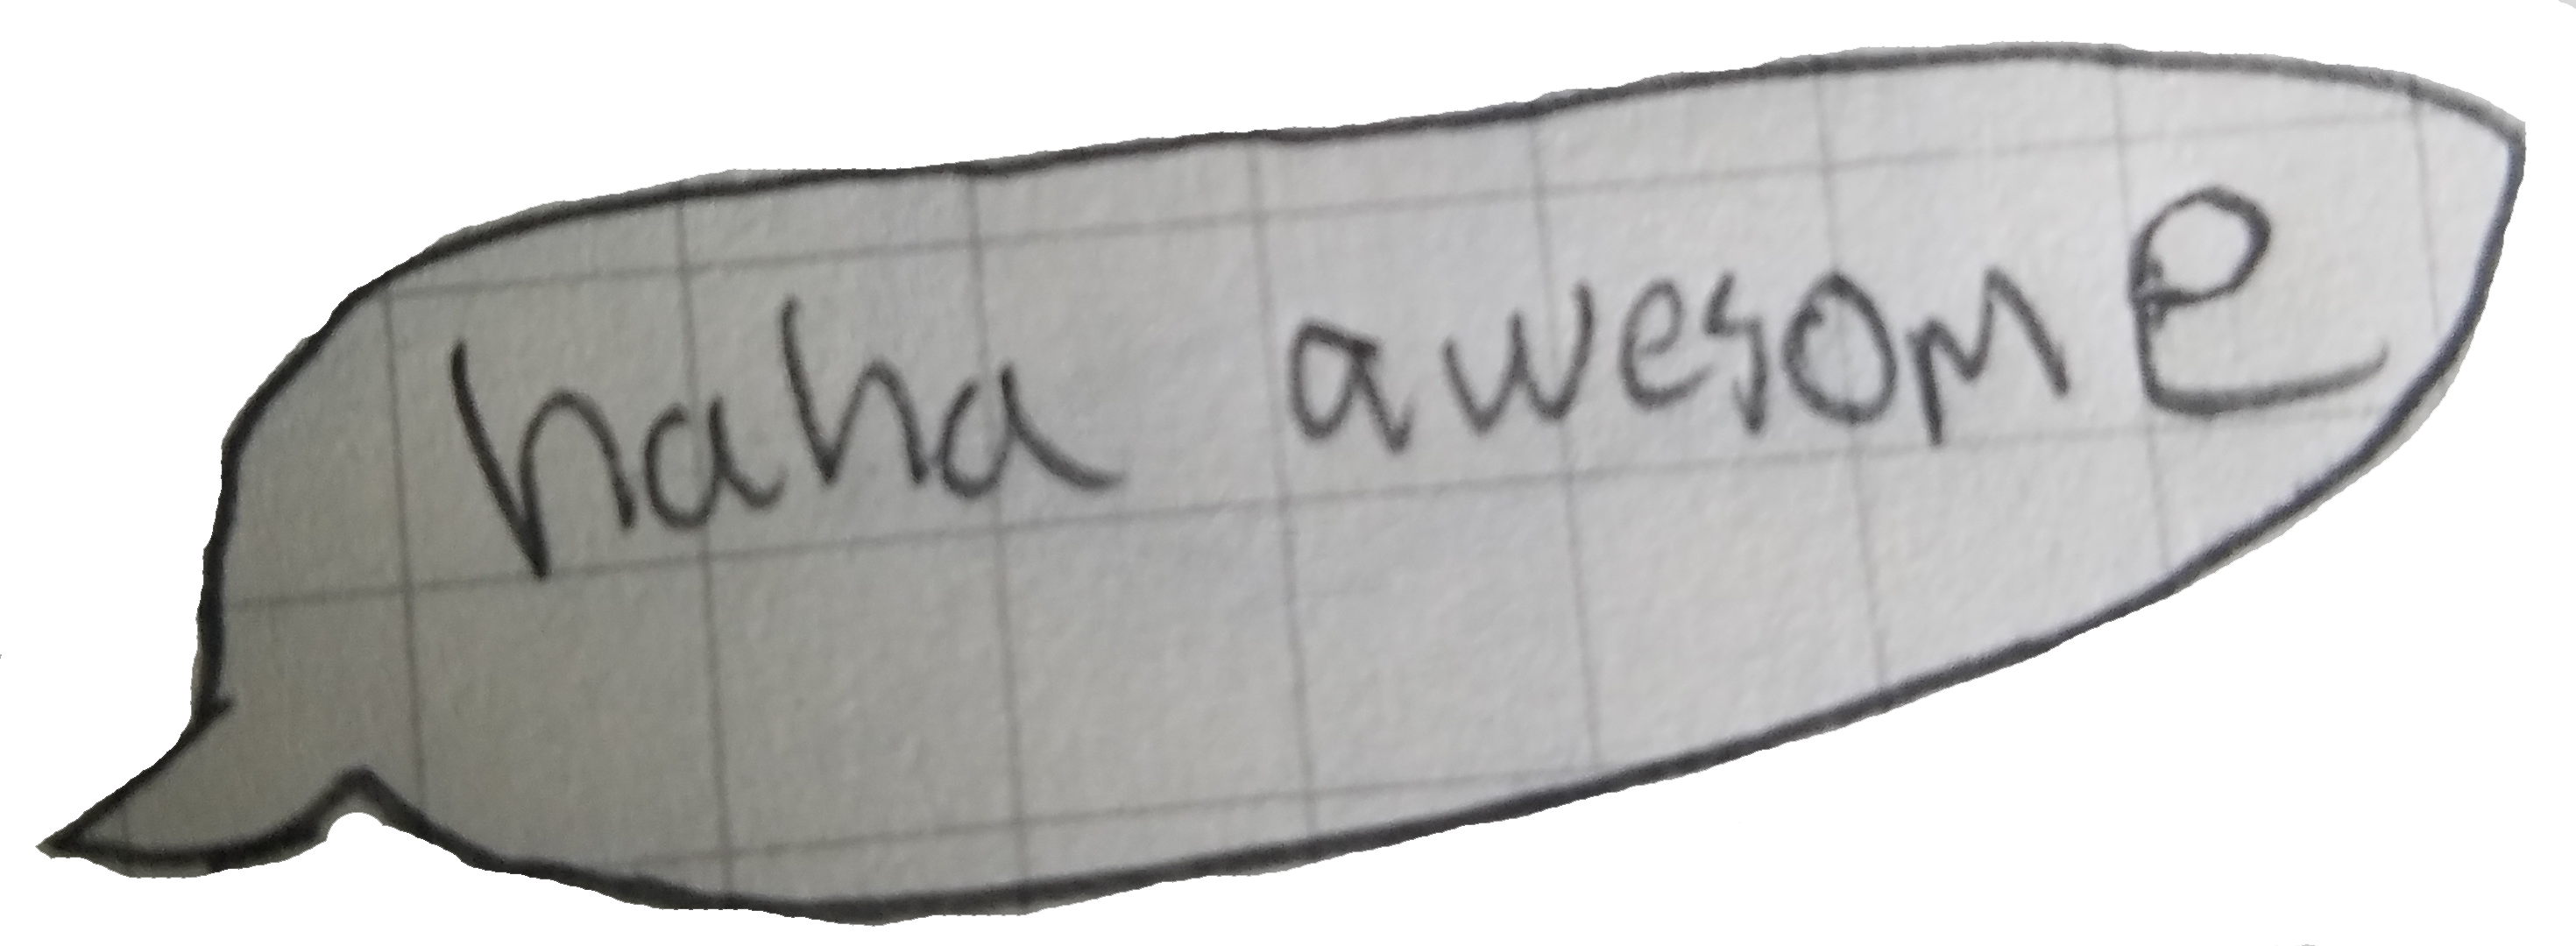 haha awesome